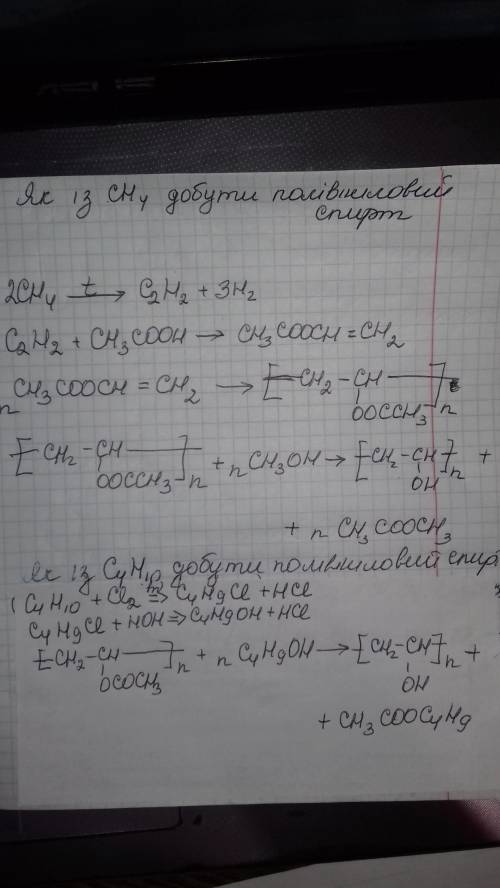 Як із CH4 добути полівініловий
спирт
2CH4 —t→ C2H2 + 3H2
C2H2 + CH3COOH → CH3COOCH = CH2
nCH3COOCH = CH2 → [—CH2 – CH—]n
OOCCH3
[—CH2 – CH—]n + nCH3OH → [CH2 – CH]n +
OOCCH3 OH
+ n CH3COOCH3
Як із C4H10 добути полівініловий спирт
C4H10 + Cl2 ⇒ C4H9Cl + HCl
C4H9Cl + HOH ⇒ C4H9OH + HCl
[—CH2 – CH—]n + n C4H9OH → [CH2 – CH]n +
OCOCH3 OH
+ CH3COOC4H9